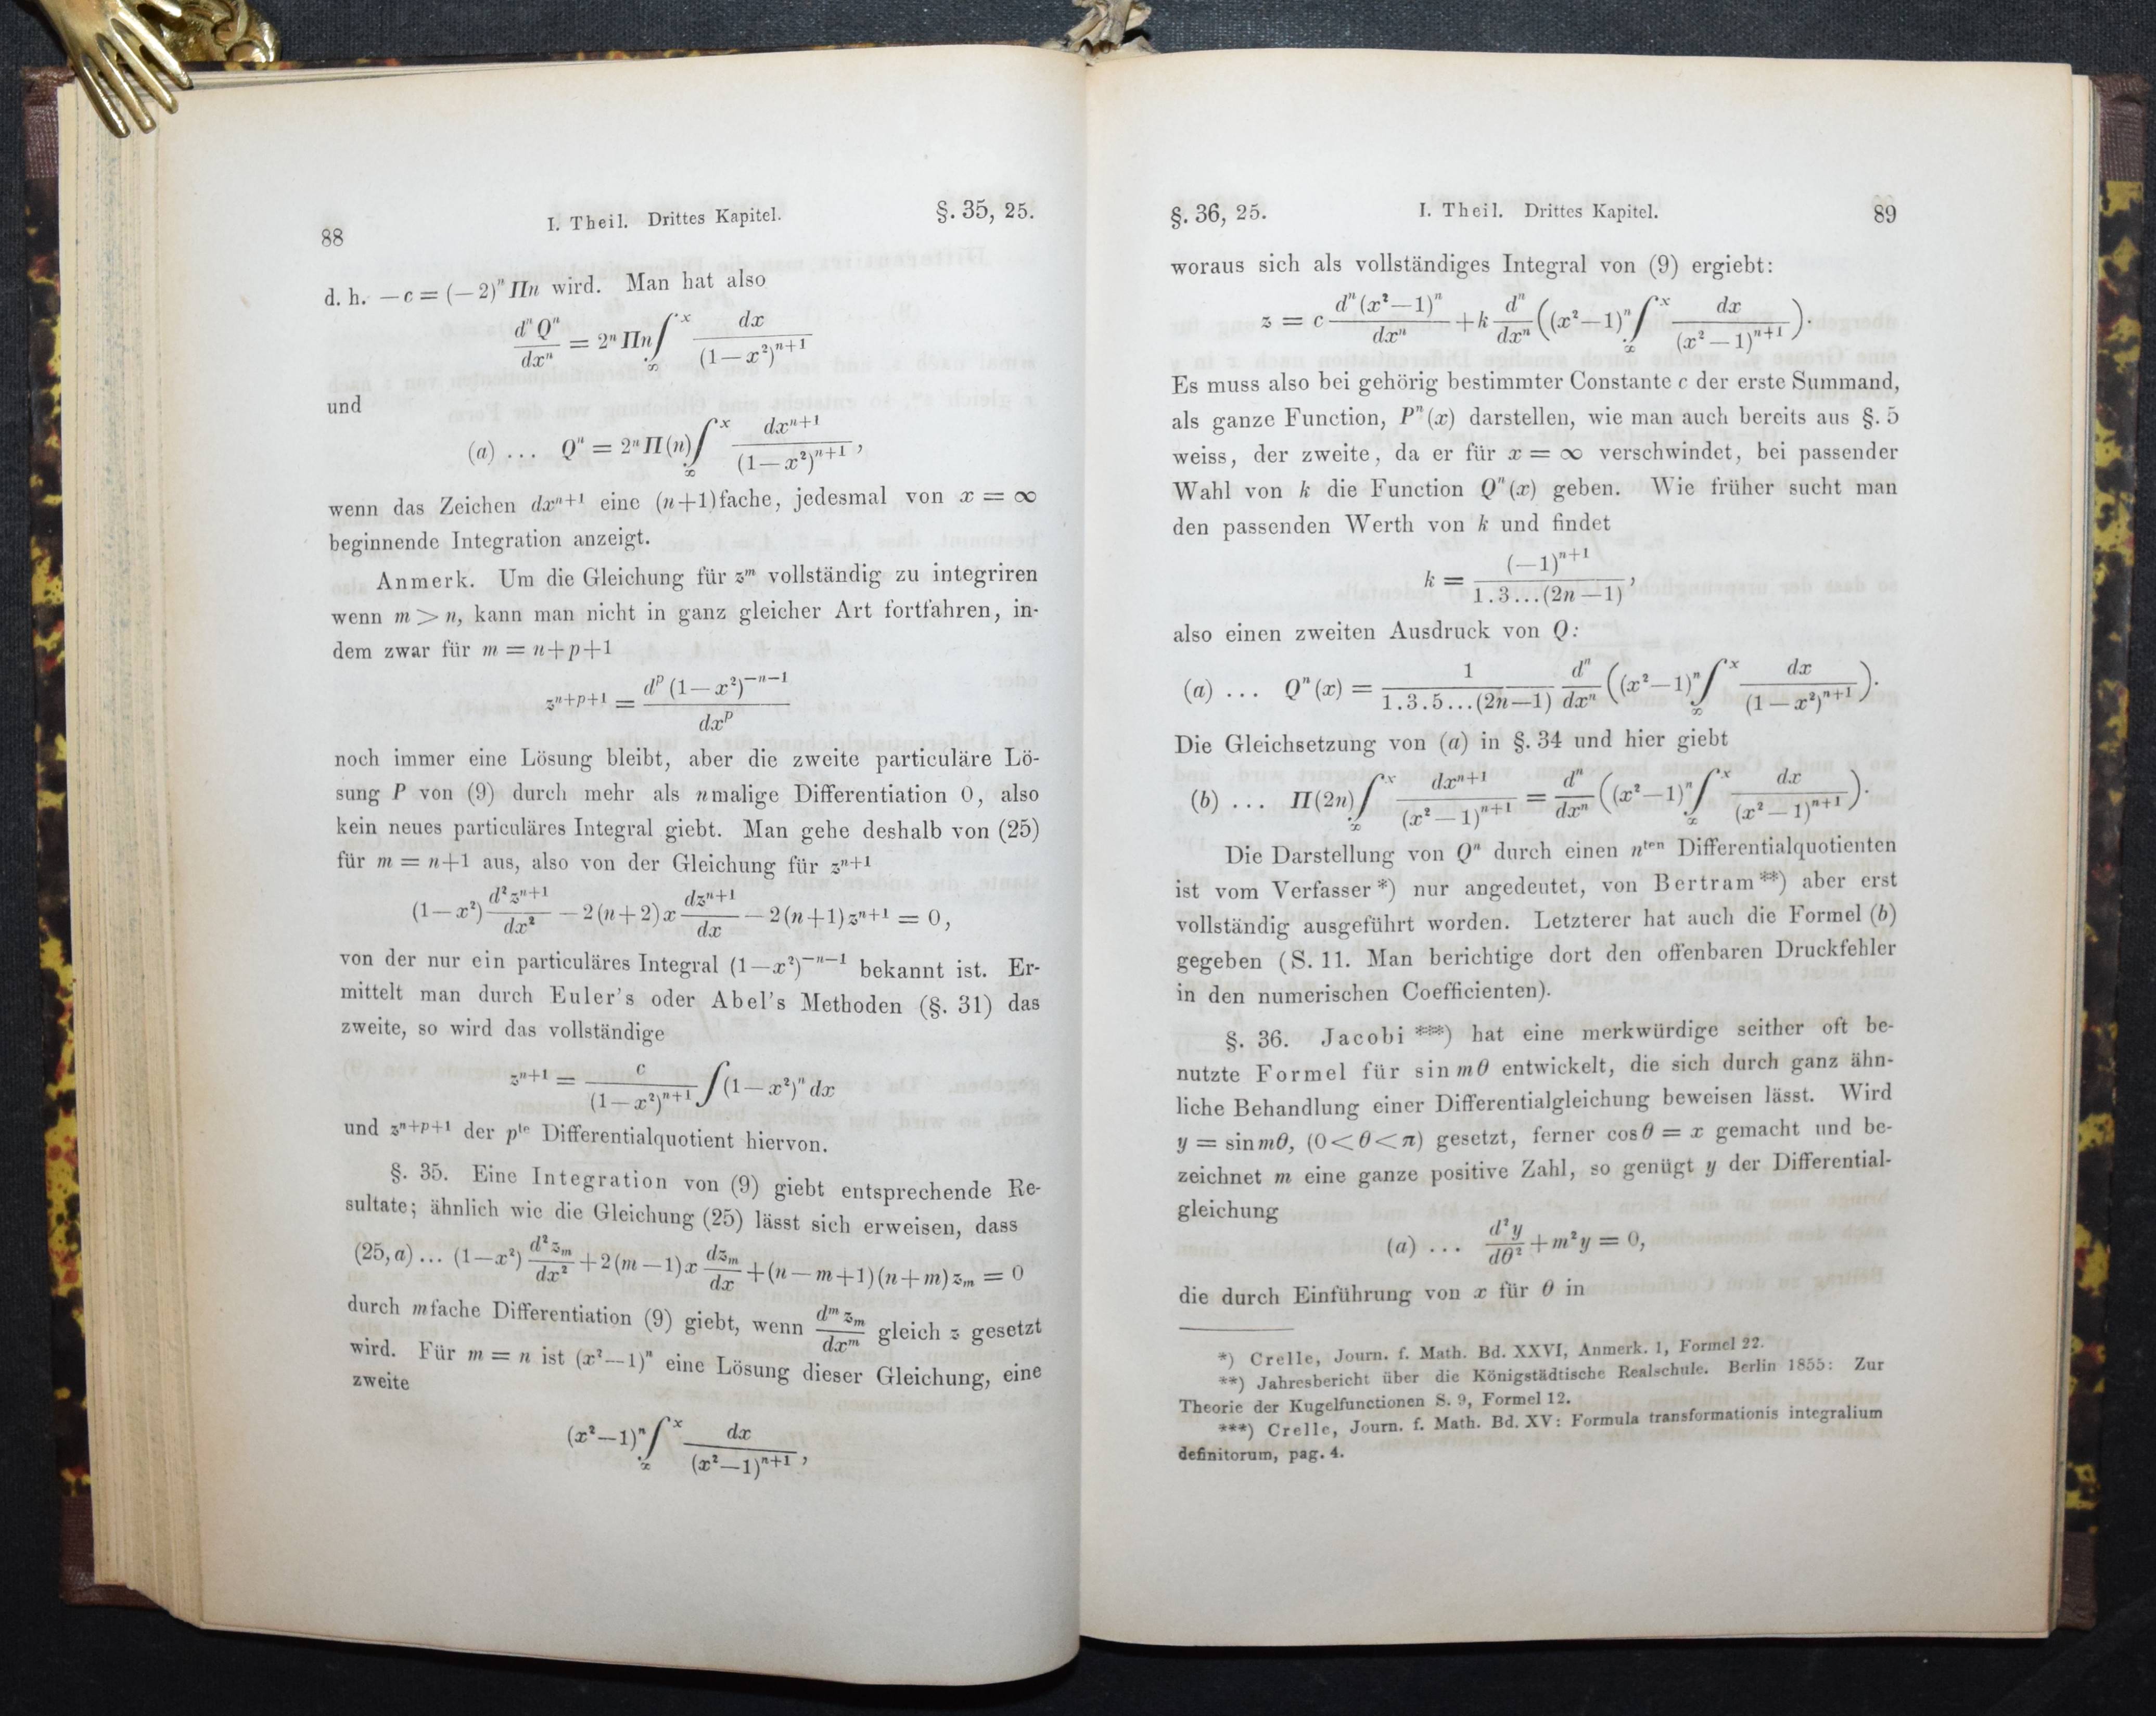 88 I. Theil. Drittes Kapitel. §. 35, 25.
d. h. −c = (−2)ⁿ Πn wird. Man hat also
dⁿQⁿ/dxⁿ = 2ⁿ Πn ∫_∞^x dx/(1−x²)ⁿ⁺¹
und
(a) ... Qⁿ = 2ⁿ Π(n) ∫_∞^x dxⁿ⁺¹/(1−x²)ⁿ⁺¹,
wenn das Zeichen dxⁿ⁺¹ eine (n+1)fache, jedesmal von x = ∞
beginnende Integration anzeigt.
Anmerk. Um die Gleichung für zᵐ vollständig zu integriren
wenn m > n, kann man nicht in ganz gleicher Art fortfahren, in-
dem zwar für m = n+p+1
zⁿ⁺ᵖ⁺¹ = dᵖ(1−x²)⁻ⁿ⁻¹/dxᵖ
noch immer eine Lösung bleibt, aber die zweite particuläre Lö-
sung P von (9) durch mehr als nmalige Differentiation 0, also
kein neues particuläres Integral giebt. Man gehe deshalb von (25)
für m = n+1 aus, also von der Gleichung für zⁿ⁺¹
(1−x²) d²zⁿ⁺¹/dx² − 2(n+2)x dzⁿ⁺¹/dx − 2(n+1)zⁿ⁺¹ = 0,
von der nur ein particuläres Integral (1−x²)⁻ⁿ⁻¹ bekannt ist. Er-
mittelt man durch Euler's oder Abel's Methoden (§. 31) das
zweite, so wird das vollständige
zⁿ⁺¹ = c/(1−x²)ⁿ⁺¹ ∫(1−x²)ⁿ dx
und zⁿ⁺ᵖ⁺¹ der pᵗᵉ Differentialquotient hiervon.
§. 35. Eine Integration von (9) giebt entsprechende Re-
sultate; ähnlich wie die Gleichung (25) lässt sich erweisen, dass
(25, a) ... (1−x²) d²z_m/dx² + 2(m−1)x dz_m/dx + (n−m+1)(n+m)z_m = 0
durch mfache Differentiation (9) giebt, wenn dᵐz_m/dxᵐ gleich z gesetzt
wird. Für m = n ist (x²−1)ⁿ eine Lösung dieser Gleichung, eine
zweite
(x²−1)ⁿ ∫_∞^x dx/(x²−1)ⁿ⁺¹,
§. 36, 25. I. Theil. Drittes Kapitel. 89
woraus sich als vollständiges Integral von (9) ergiebt:
z = c dⁿ(x²−1)ⁿ/dxⁿ + k dⁿ/dxⁿ((x²−1)ⁿ ∫_∞^x dx/(x²−1)ⁿ⁺¹).
Es muss also bei gehörig bestimmter Constante c der erste Summand,
als ganze Function, Pⁿ(x) darstellen, wie man auch bereits aus §. 5
weiss, der zweite, da er für x = ∞ verschwindet, bei passender
Wahl von k die Function Qⁿ(x) geben. Wie früher sucht man
den passenden Werth von k und findet
k = (−1)ⁿ⁺¹/1.3...(2n−1),
also einen zweiten Ausdruck von Q:
(a) ... Qⁿ(x) = 1/1.3.5...(2n−1) dⁿ/dxⁿ((x²−1)ⁿ ∫_∞^x dx/(1−x²)ⁿ⁺¹).
Die Gleichsetzung von (a) in §. 34 und hier giebt
(b) ... Π(2n) ∫_∞^x dxⁿ⁺¹/(x²−1)ⁿ⁺¹ = dⁿ/dxⁿ((x²−1)ⁿ ∫_∞^x dx/(x²−1)ⁿ⁺¹).
Die Darstellung von Qⁿ durch einen nᵗᵉⁿ Differentialquotienten
ist vom Verfasser*) nur angedeutet, von Bertram**) aber erst
vollständig ausgeführt worden. Letzterer hat auch die Formel (b)
gegeben (S. 11. Man berichtige dort den offenbaren Druckfehler
in den numerischen Coefficienten).
§. 36. Jacobi***) hat eine merkwürdige seither oft be-
nutzte Formel für sin mθ entwickelt, die sich durch ganz ähn-
liche Behandlung einer Differentialgleichung beweisen lässt. Wird
y = sin mθ, (0<θ<π) gesetzt, ferner cos θ = x gemacht und be-
zeichnet m eine ganze positive Zahl, so genügt y der Differential-
gleichung
(a) ... d²y/dθ² + m²y = 0,
die durch Einführung von x für θ in
*) Crelle, Journ. f. Math. Bd. XXVI, Anmerk. 1, Formel 22.
**) Jahresbericht über die Königstädtische Realschule. Berlin 1855: Zur
Theorie der Kugelfunctionen S. 9, Formel 12.
***) Crelle, Journ. f. Math. Bd. XV: Formula transformationis integralium
definitorum, pag. 4.